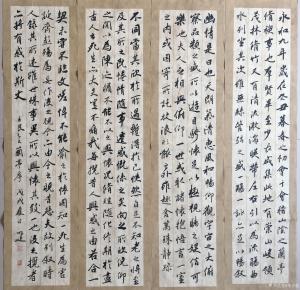 永和九年歲在癸丑暮春之初會于會稽山陰之蘭亭
脩稧事也群賢畢至少長咸集此地有崇山峻領
茂林脩竹又有清流激湍暎帶左右引以為流觴曲
水列坐其次雖無絲竹管弦之盛一觴一詠亦足以暢敘
幽情是日也天朗氣清惠風和暢仰觀宇宙之大俯
察品類之盛所以遊目騁懷足以極視聽之娛信可
樂也夫人之相與俯仰一世或取諸懷抱悟言一室
之內或因寄所託放浪形骸之外雖趣舍萬殊靜躁
不同當其欣於所遇暫得於己怏然自足不知老之將至
及其所之既惓情隨事遷感慨係之矣向之所欣俛仰
之間以為陳迹猶不能不以之興懷況脩短隨化終期於盡
古人云死生亦大矣豈不痛哉每攬昔人興感之由若合一
契未嘗不臨文嗟悼不能喻之於懷固知一死生為虛
誕齊彭殤為妄作後之視今亦由今之視昔悲夫故列敘時
人錄其所述雖世殊事異所以興懷其致一也後之攬者
亦將有感於斯文 蘭亭序 戊戌